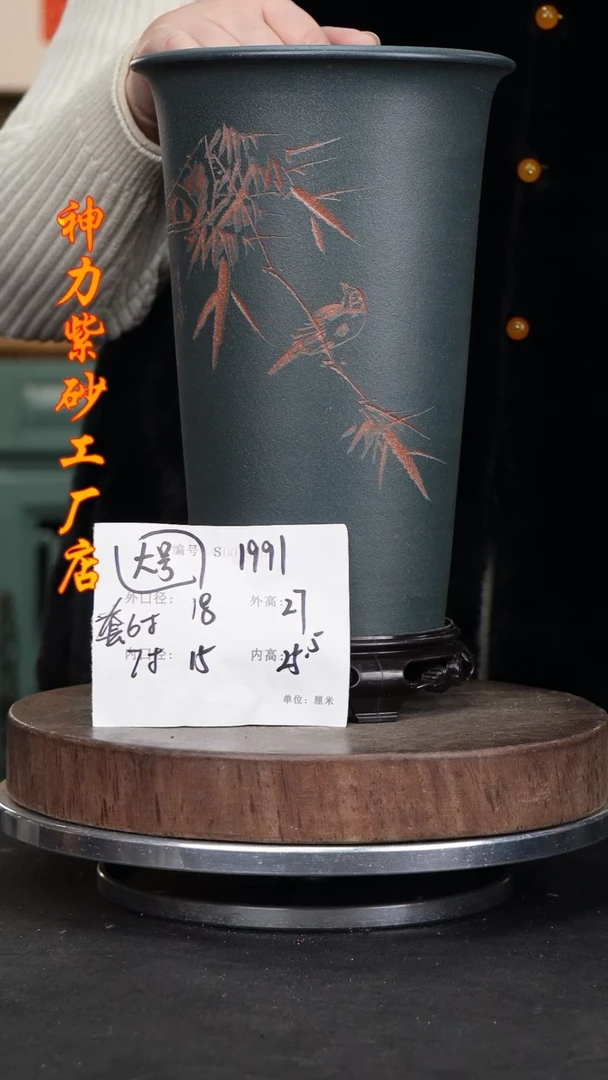 神力紫砂工厂店
大号 编号 S 1991
外口径: 18 外高: 27
套6寸
内口径: 15 内高: 25.5
7寸
单位: 厘米